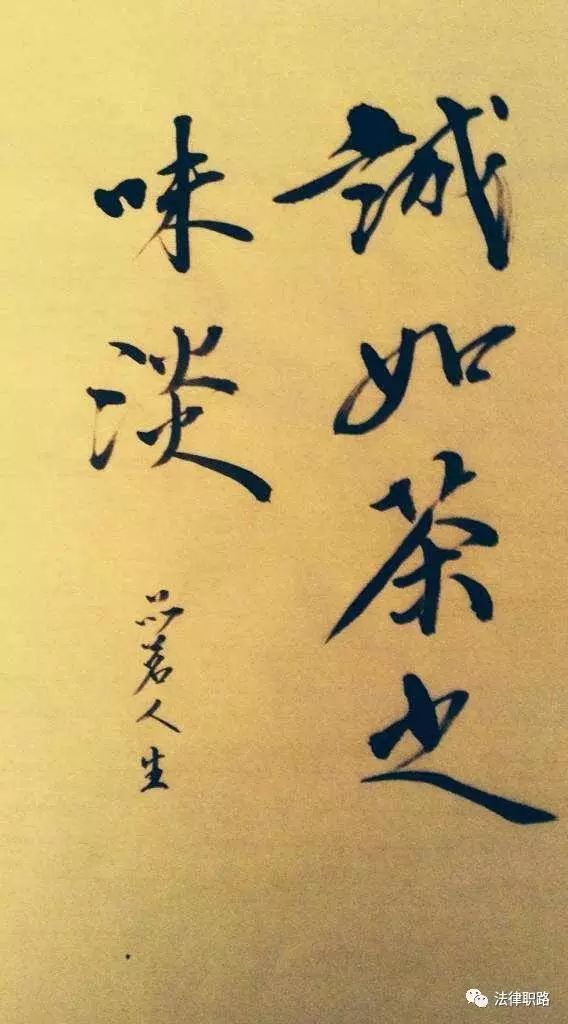 誠如茶之
味淡
品茗人生
法律职路